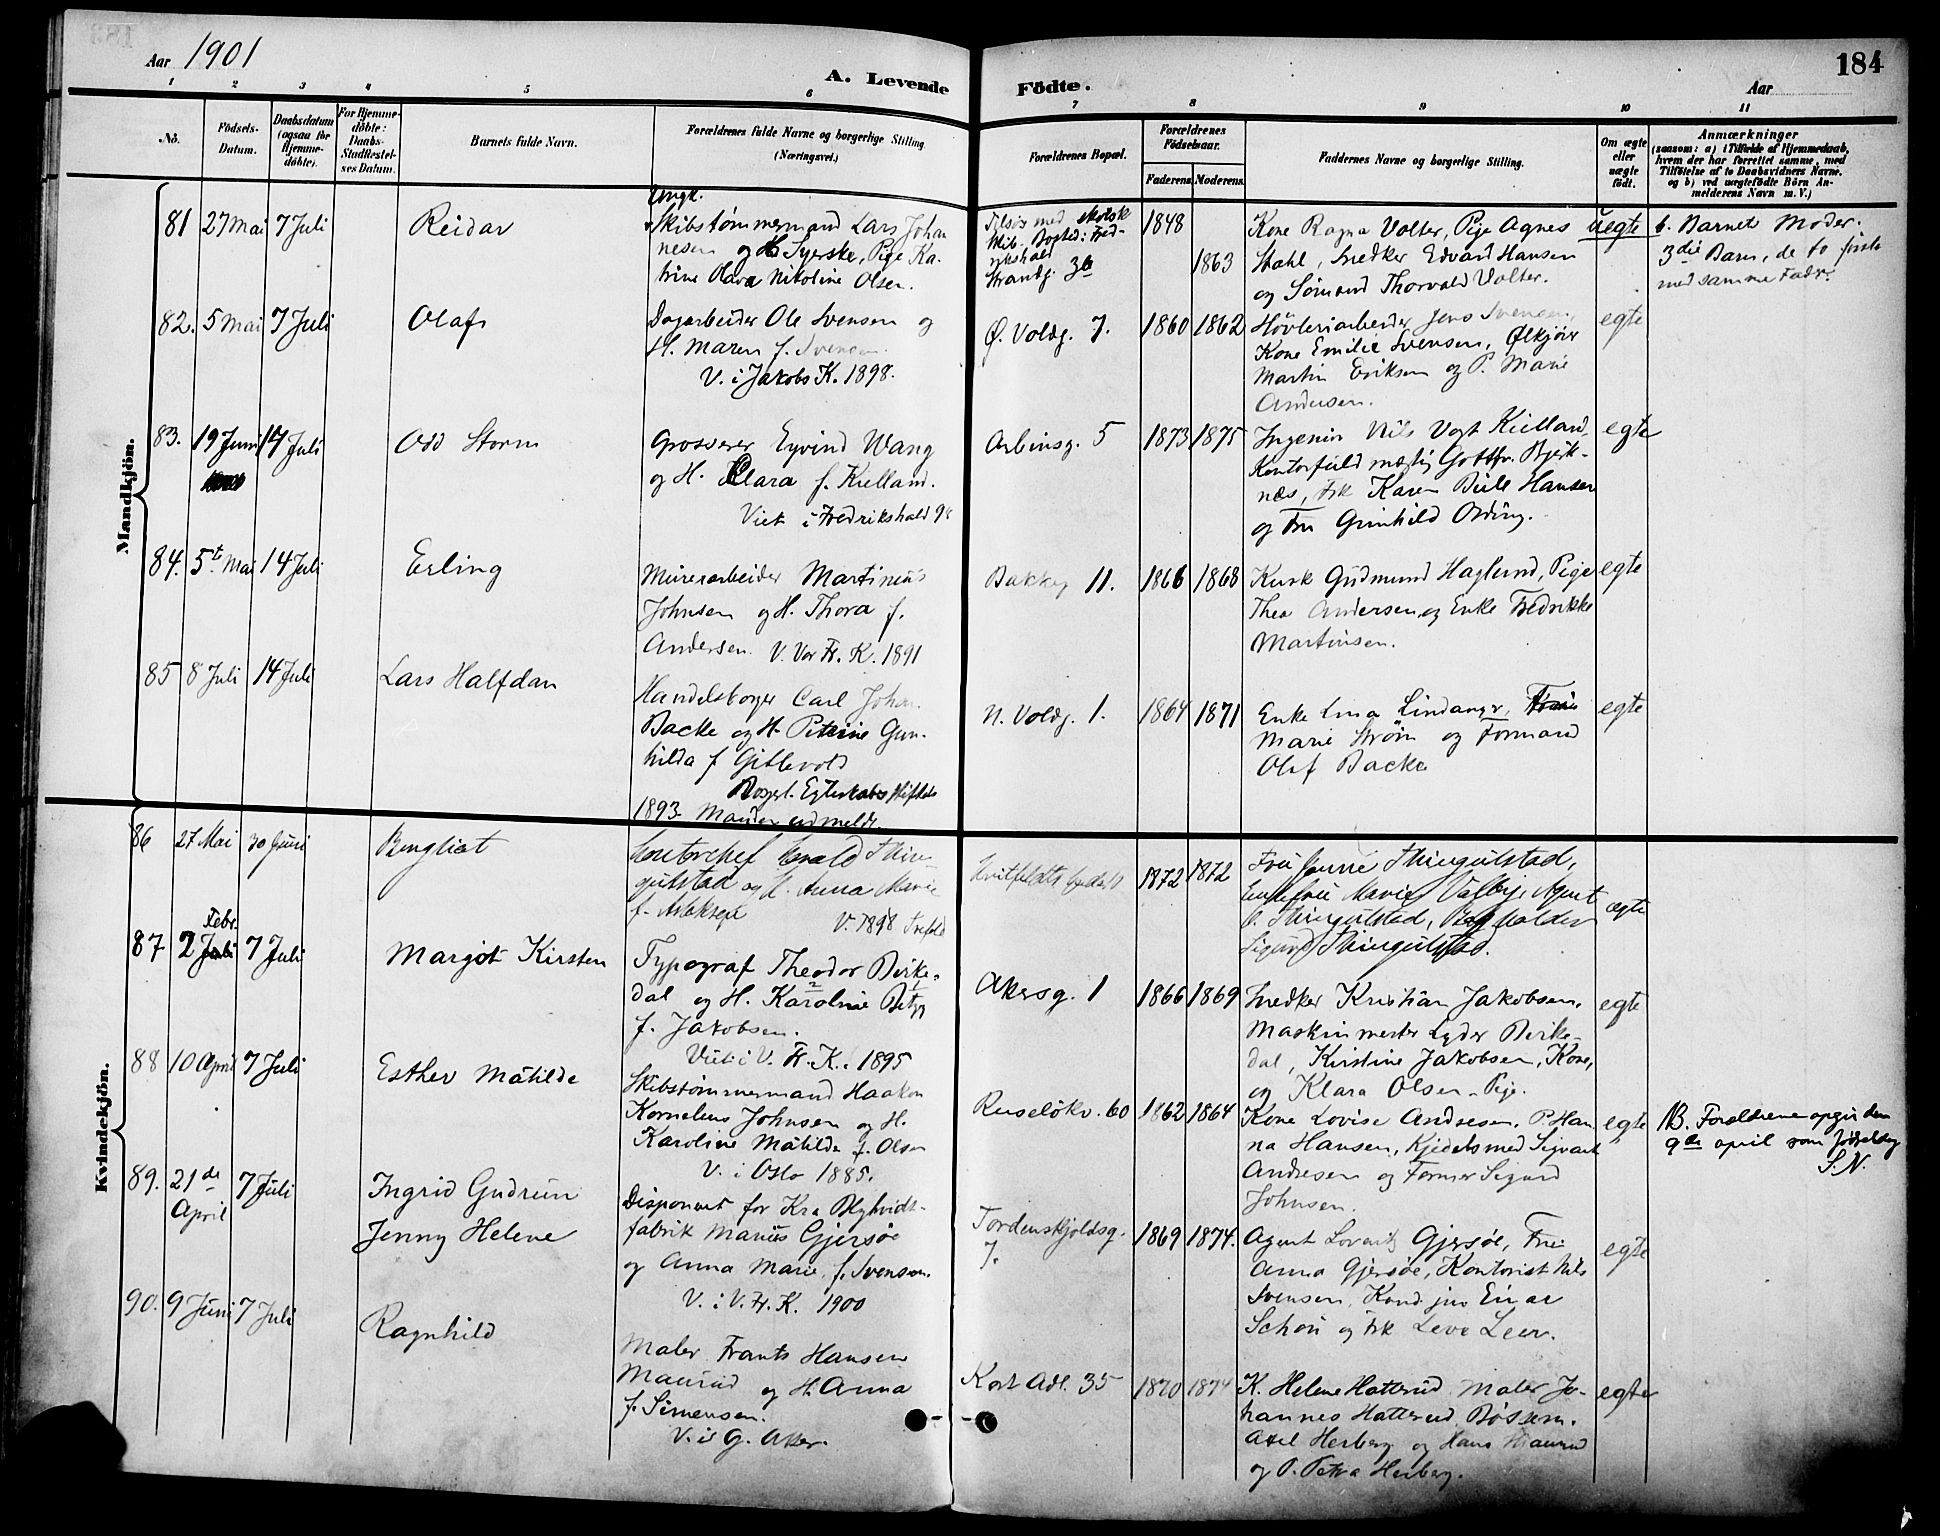 Aar 1901
A. Levende Födte.
184
Aar
1 2 3 4 5 6 7 8 9 10 11
No.
Födsels-Datum.
Daabsdatum (ogsaa for Hjemmedöbte).
For Hjemmedöbte: Daabs-Stadfæstelses Datum.
Barnets fulde Navn.
Forældrenes fulde Navne og borgerlige Stilling (Næringsvei.)
Forældrenes Bopæl.
Forældrenes Födselsaar.
Faderens Moderens
Faddernes Navne og borgerlige Stilling.
Om ægte eller uægte født.
Anmærkninger
(saasom: a) i Tilfælde af Hjemmedaab,
hvem der har forrettet samme, med
Tilföielse af to Daabsvidners Navne,
og b) ved uægtefödte Börn An-
melderens Navn m. V.)
Mandkjön.
81 27 Mai 7 Juli
Reidar
Ungk.
Skibstømmermand Lars Johan
nesen og Syerske, Pige Ka-
trine Olava Nikoline Olsen.
Strandg. 36
1848
1863
Kone Ragna Volter, Pige Agnes
Stahl, Snedker Edvard Hansen
og Sømand Thorvald Volter.
uegte
b. Barnets Moder.
3die Barn, de to første
med samme Fader.
82. 5 Mai 7 Juli
Olaf
Dagarbeider Ole Svensen og
H. Maren f. Svensen.
V. i Jakobs K. 1898.
Ø. Voldg. 7.
1860 1862
Høvleriarbeider Jens Svensen,
Kone Emilie Svensen, Ølkjører
Martin Eriksen og P. Marie
Andersen.
egte
83. 19 Juni 14 Juli
Odd Storm
Grosserer Eyvind Wang
og H. Clara f. Kielland.
Viet i Fredrikshald 98
Arbinsg. 5
1873 1875
Ingeniør Nils Vogt Kielland,
Kontorfuldmægtig Gottfr. Bjerk-
næs, Frk Karen Bull Hansen
og Fru Gunhild Ording.
egte
84. 5t. Mai 14 Juli
Erling
Murerarbeider Martinius
Johnsen og H. Thora f.
Andersen. V. Vor Fr. K. 1891
Bakkeg 11.
1866 1868
Kusk Gudmund Haglund, Pige
Thea Andersen og Enke Fredrikke
Martinsen.
egte
85 8 Juli 14 Juli
Lars Halfdan
Handelsborger Carl Johan
Backe og H. Petrine Gun-
hilda f Gitlevold
Borgerl. Egteskab
1893. Manden udmeldt.
N. Voldg. 1.
1864 1871
Enke Lina Lindanger,
Marie Strøm og Formand
Olaf Backe
egte
Kvindekjön.
86 27 Mai 30 Juni
Bengliot
Kontorchef Harald Thin-
gulstad og H. Anna Marie
f.
V. 1898
1872 1872
Fru Jenny Thingulstad,
Enkefru Marie Valby, Agent
O. Thingulstad, Bogholder
Sigurd Thingulstad.
ægte
87 2 Febr. Juli 7 Juli
Margot Kirsten
Typograf Theodor Birke-
dal og H. Karoline Betzy
f. Jakobsen.
Viet i V. Fr. K. 1895
Akersg. 1
1866 1869
Snedker Kristian Jakobsen,
Maskinmester Lyder Birke-
dal, Kirstine Jakobsen, Kone,
og Klara Olsen, Pige.
egte
88 10 April 7 Juli
Esther Matilde
Skibstømmermand Haakon
Kornelius Johnsen og H.
Karoline Matilde f. Olsen
V. i Oslo 1885.
Ruseløkv. 60
1862 1864
Kone Lovise Andresen, P. Han
na Hansen, Kjedelsmed Sigvart
Andresen og Former Sigurd
Johnsen.
egte
NB. Forældrene opgir den
9de april som fødselsdag
S.N.
89. 21de April 7 Juli
Ingrid Gudrun
Jenny Helene
Disponent for Kra Blyhvidt-
fabrik Marius Gjersøe
og Anna Marie f. Svensen.
V. i V. Fr. K. 1900
Tordenskjoldsg.
7.
1869 1874.
Agent Lorentz Gjersøe, Fru
Anna Gjersøe, Kontorist Nils
Svensen, Kand. jur Einar
Schou og Frk
egte
90. 9 Juni 7 Juli
Ragnhild
Maler Frants Hansen
Maurud og H. Anna
f. Simensen.
V. i G. Aker.
Kort Adl. 35
1870 1874
K. Helene Hatterud, Maler Jo-
hannes Hatterud, Bøssem.
Axel Herberg og Hans Maurud
og P. Petra Herberg.
egte